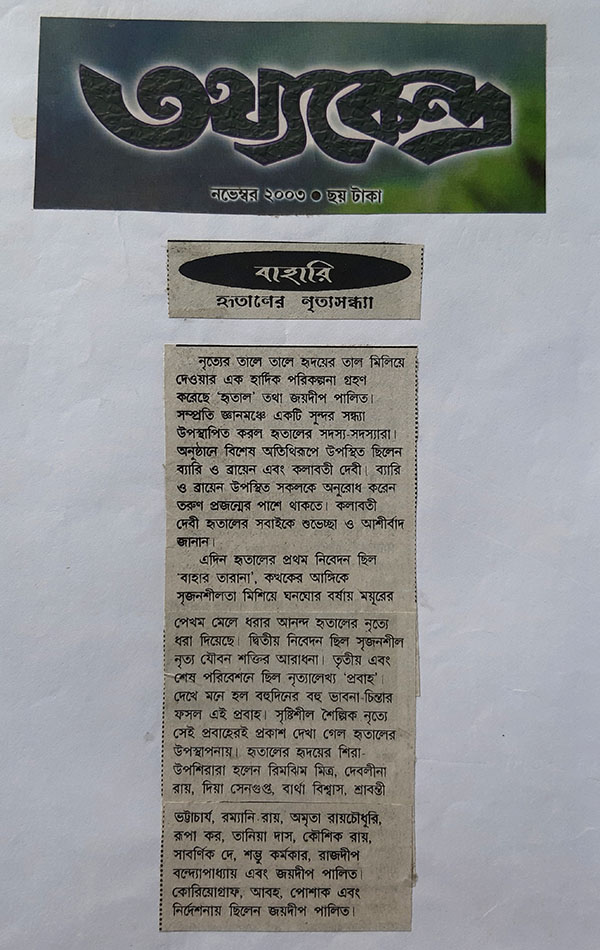 তথ্যকেন্দ্র
নভেম্বর ২০০৩ ● ছয় টাকা
বাহারি
হৃতালের নৃত্যসন্ধ্যা
নৃত্যের তালে তালে হৃদয়ের তাল মিলিয়ে
দেওয়ার এক হার্দিক পরিকল্পনা গ্রহণ
করেছে ‘হৃতাল’ তথা জয়দীপ পালিত।
সম্প্রতি জ্ঞানমঞ্চে একটি সুন্দর সন্ধ্যা
উপস্থাপিত করল হৃতালের সদস্য-সদস্যারা।
অনুষ্ঠানে বিশেষ অতিথিরূপে উপস্থিত ছিলেন
ব্যারি ও ব্রায়েন এবং কলাবতী দেবী। ব্যারি
ও ব্রায়েন উপস্থিত সকলকে অনুরোধ করেন
তরুণ প্রজন্মের পাশে থাকতে। কলাবতী
দেবী হৃতালের সবাইকে শুভেচ্ছা ও আশীর্বাদ
জানান।
এদিন হৃতালের প্রথম নিবেদন ছিল
‘বাহার তারানা’, কত্থকের আঙ্গিকে
সৃজনশীলতা মিশিয়ে ঘনঘোর বর্ষায় ময়ূরের
পেখম মেলে ধরার আনন্দ হৃতালের নৃত্যে
ধরা দিয়েছে। দ্বিতীয় নিবেদন ছিল সৃজনশীল
নৃত্য যৌবন শক্তির আরাধনা। তৃতীয় এবং
শেষ পরিবেশনে ছিল নৃত্যালেখ্য ‘প্রবাহ’।
দেখে মনে হল বহুদিনের বহু ভাবনা-চিন্তার
ফসল এই প্রবাহ। সৃষ্টিশীল শৈল্পিক নৃত্যে
সেই প্রবাহেরই প্রকাশ দেখা গেল হৃতালের
উপস্থাপনায়। হৃতালের হৃদয়ের শিরা-
উপশিরারা হলেন রিমঝিম মিত্র, দেবলীনা
রায়, দিয়া সেনগুপ্ত, বার্থা বিশ্বাস, শ্রাবন্তী
ভট্টাচার্য, রম্যানি রায়, অমৃতা রায়চৌধুরি,
রূপা কর, তানিয়া দাস, কৌশিক রায়,
সাবর্ণিক দে, শম্ভু কর্মকার, রাজদীপ
বন্দ্যোপাধ্যায় এবং জয়দীপ পালিত।
কোরিয়োগ্রাফ, আবহ, পোশাক এবং
নির্দেশনায় ছিলেন জয়দীপ পালিত।